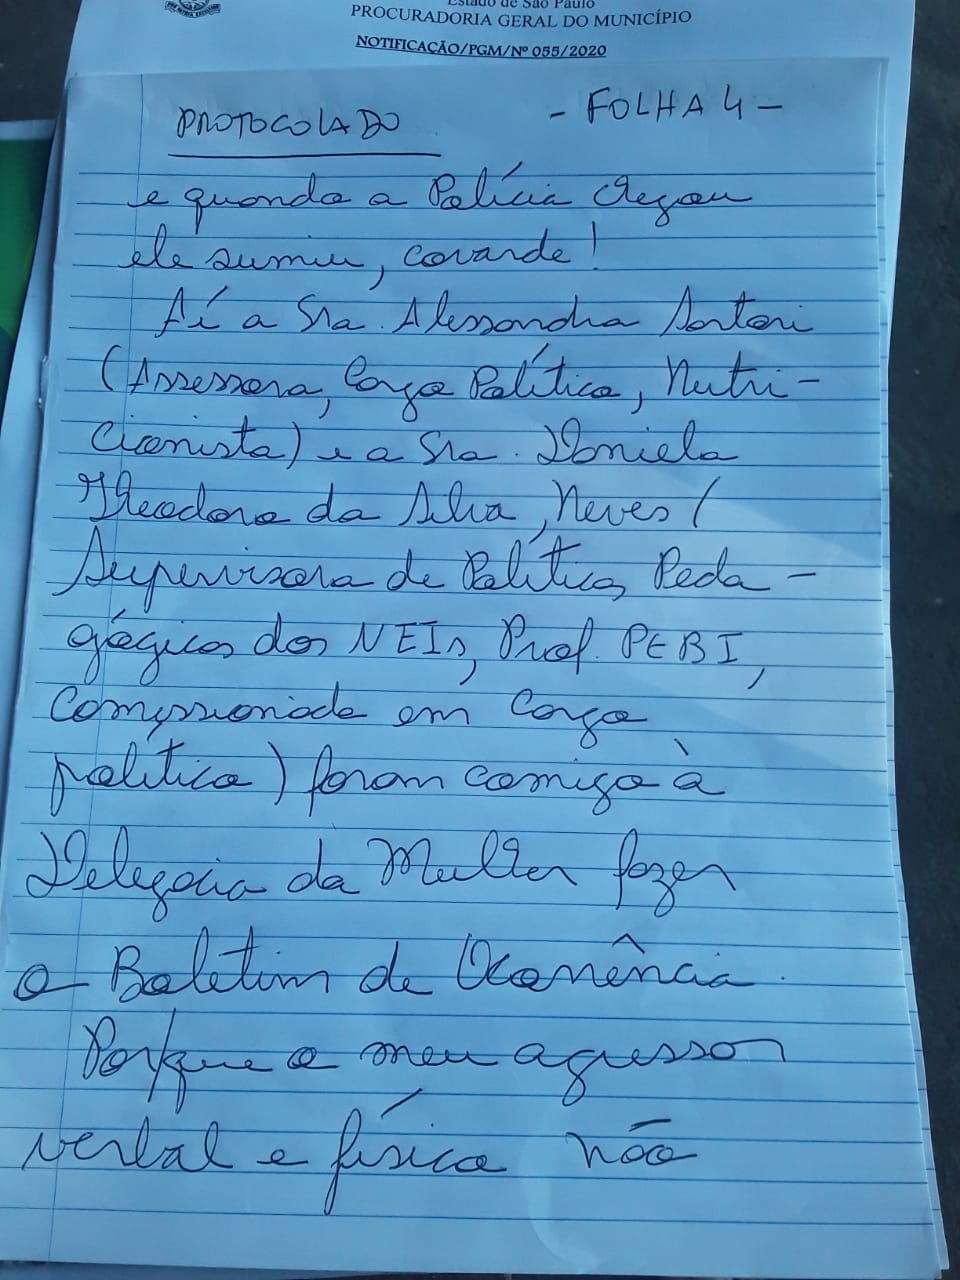 Estado de São Paulo
PROCURADORIA GERAL DO MUNICÍPIO
NOTIFICAÇÃO/PGM/Nº 055/2020
PROTOCOLADO - FOLHA 4 -
e quando a Polícia chegou
ele sumiu, covarde!
Aí a Sra. Alessandra Sartori
(Assessora, Cargo Político, Nutri-
cionista) e a Sra. Daniela
Theodoro da Silva, Neves (
Supervisora de Política Peda-
gógicos dos NEIs, Prof. PEBI,
Comissionada em Cargo
político) foram comigo à
Delegacia da Mulher fazer
o Boletim de Ocorrência.
Porque o meu agressor
verbal e físico não